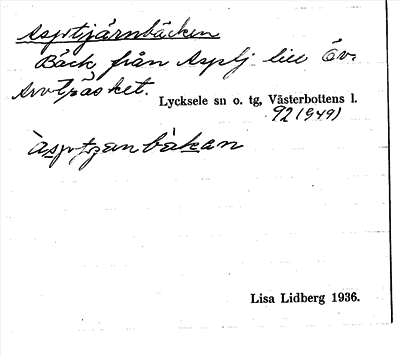 Asptjärnbäcken
Bäck från Asptj. till Öv.
Arvträsket.
Lycksele sn o. tg, Västerbottens l.
92 (949)
àsptjanbäkan
Lisa Lidberg 1936.